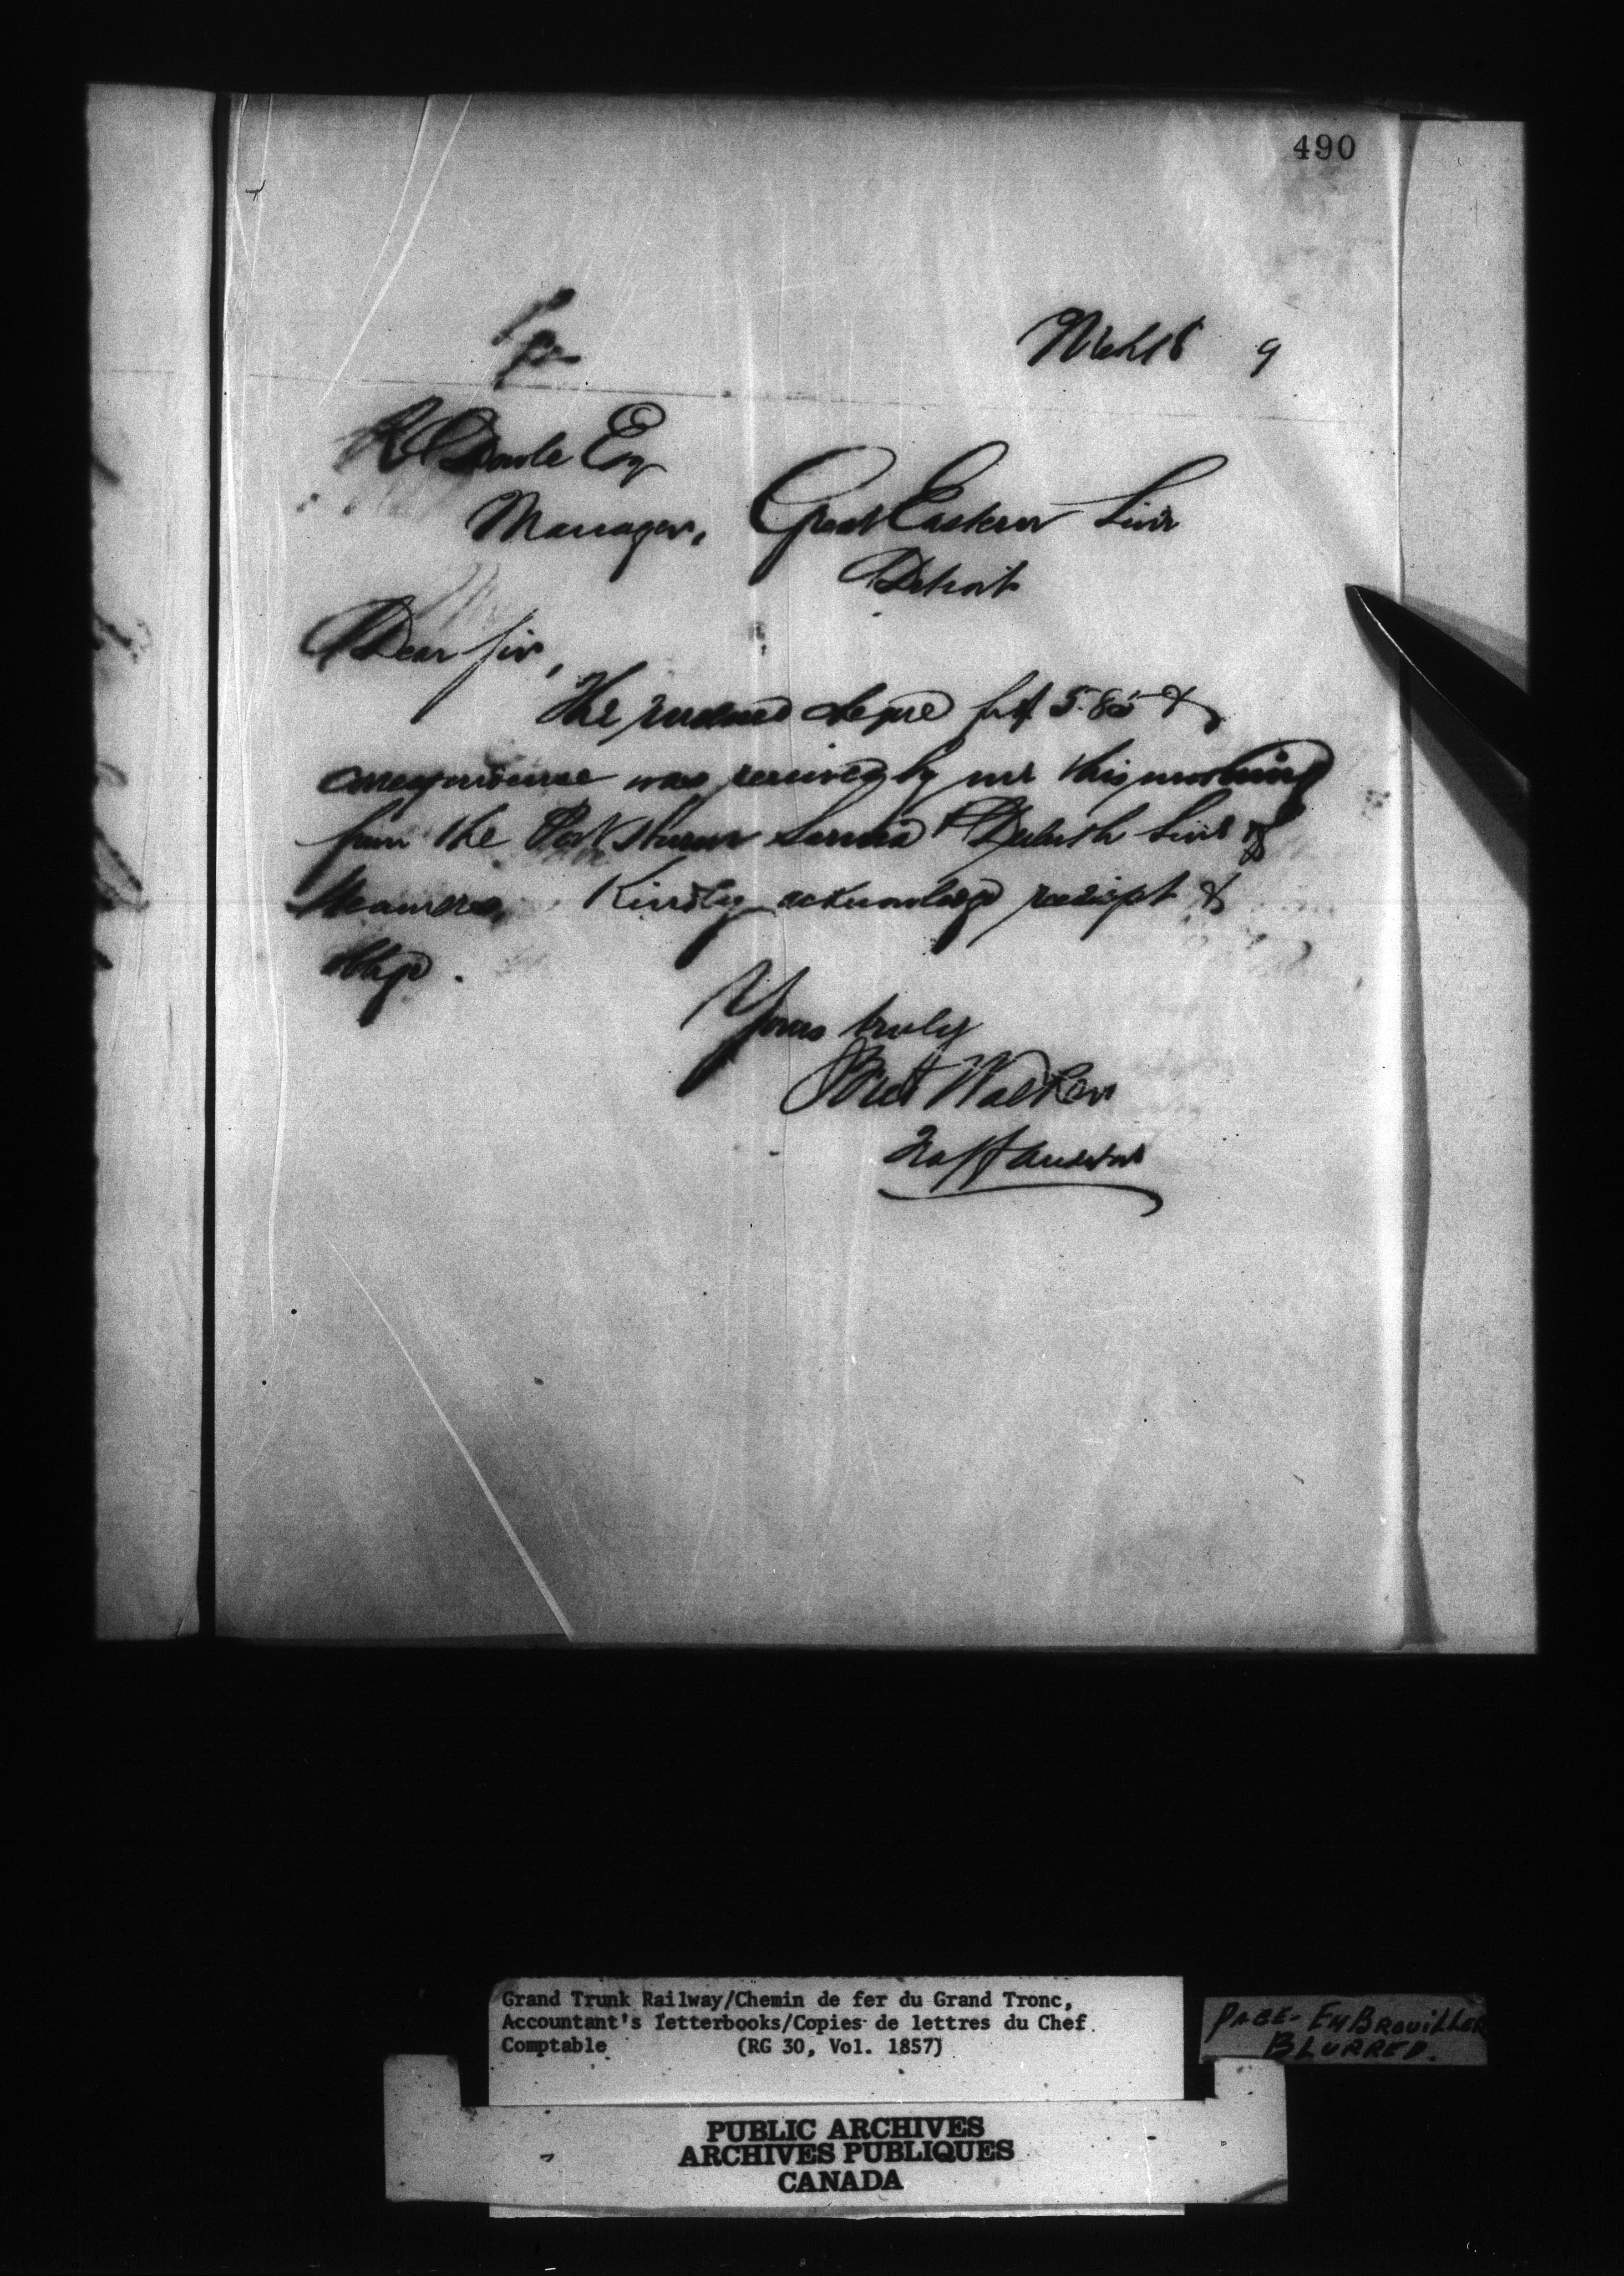 490
Mch 18 9
Esq
Manager, Great Eastern Line
Detroit
Dear Sir,
The enclosed cheque for $ 5.85 &
correspondence was received by me this morning
from the Sarnia & Duluth Line of
Steamers. Kindly acknowledge receipt &
oblige.
Yours truly
Walker
Auditor
Grand Trunk Railway/Chemin de fer du Grand Tronc,
Accountant's letterbooks/Copies de lettres du Chef
Comptable (RG 30, Vol. 1857)
PAGE - EMBROUILLER
BLURRED.
PUBLIC ARCHIVES
ARCHIVES PUBLIQUES
CANADA